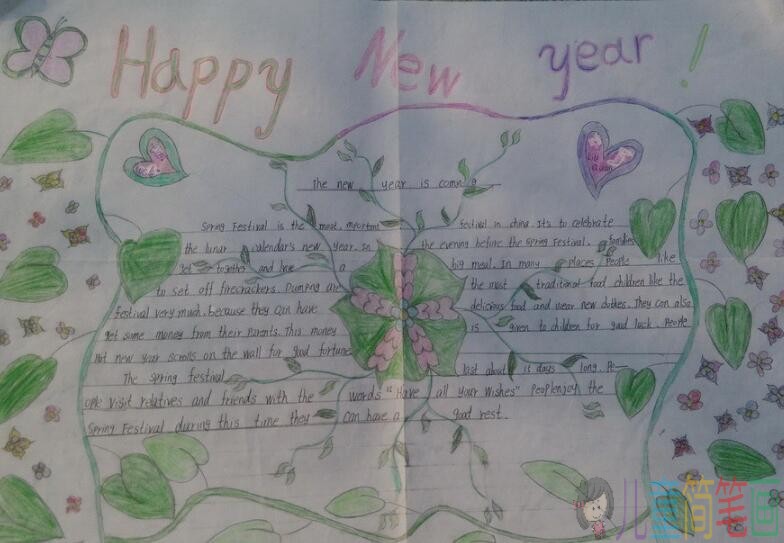 Happy New year!
The new year is coming
Spring Festival is the most important festival in china. It's to celebrate
the lunar calendar's new year. In the evening before the Spring Festival. families
get together and have a big meal. In many places people like
to set off firecrackers. Dumping are the most traditional food children like the
festival very much. because they can have delicious food and wear new clothes. They can also
get some money from their parents. This money is given to children for good luck. People
Put new year scrolls on the wall for good fortune
The spring festival last about 15 days long. Pe—
ople visit relatives and friends with the words "Have all your wishes" Peoplenjoy the
Spring Festival during this time they can have a good rest.
儿童简笔画